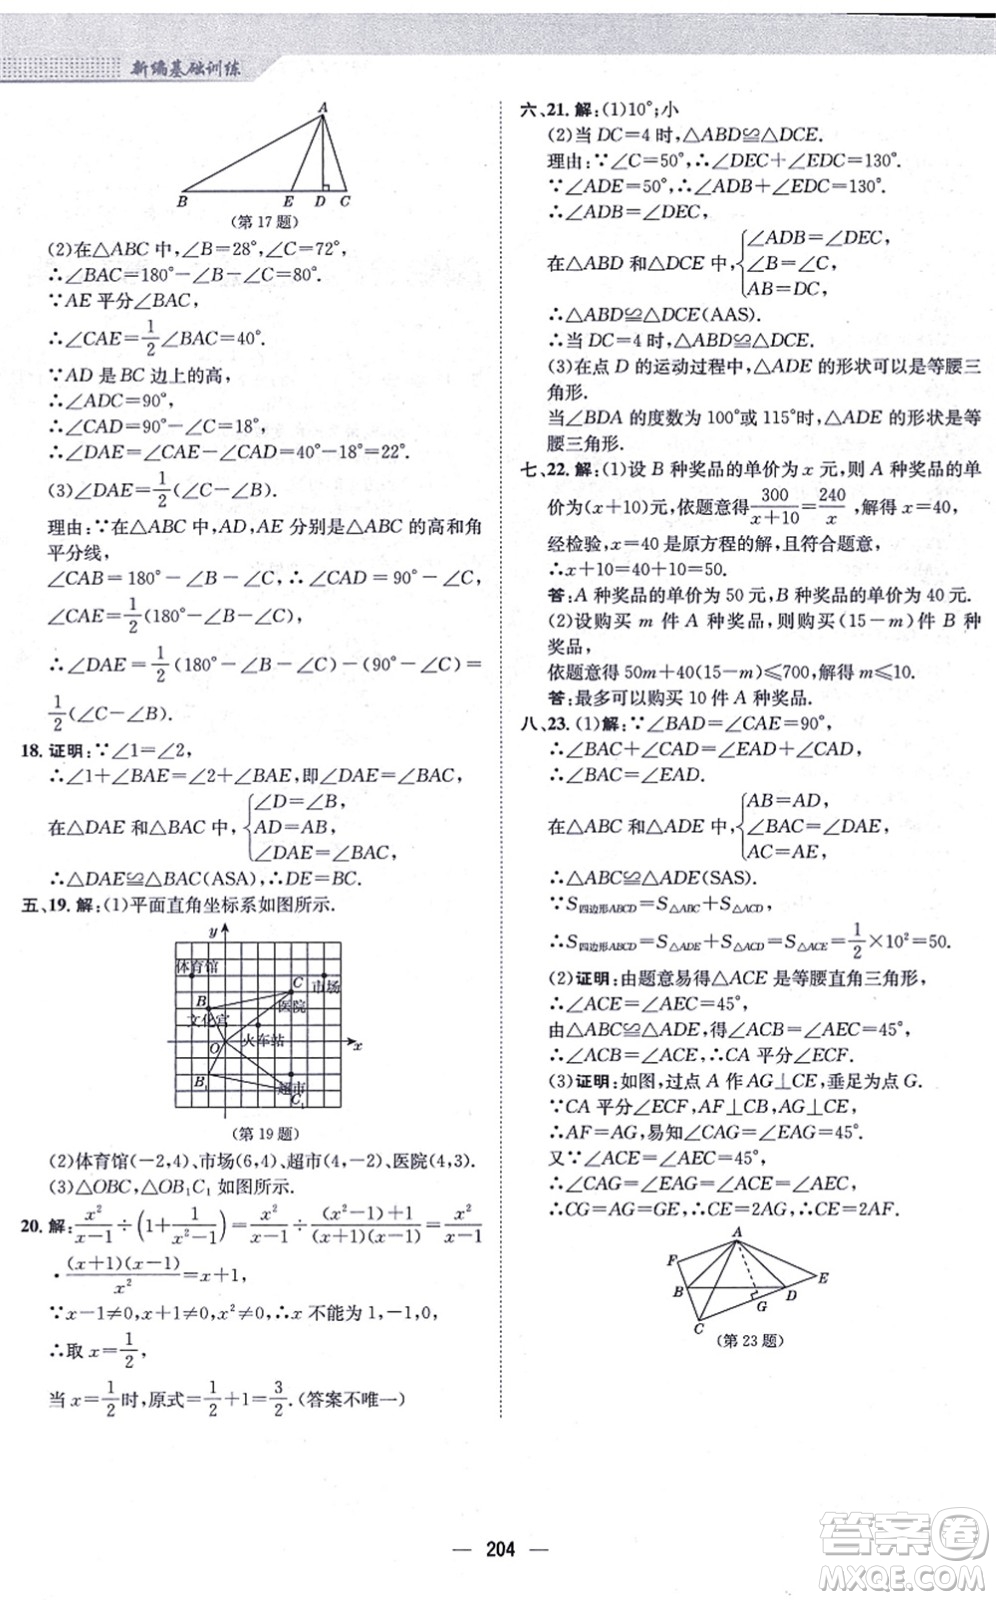 新编基础训练
A
B E D C
(第17题)
(2)在△ABC中,∠B=28°,∠C=72°,
∴∠BAC=180°-∠B-∠C=80°.
∵AE平分∠BAC,
∴∠CAE=1/2∠BAC=40°.
∵AD是BC边上的高,
∴∠ADC=90°,
∴∠CAD=90°-∠C=18°,
∴∠DAE=∠CAE-∠CAD=40°-18°=22°.
(3)∠DAE=1/2(∠C-∠B).
理由:∵在△ABC中,AD,AE分别是△ABC的高和角
平分线,
∠CAB=180°-∠B-∠C,∴∠CAD=90°-∠C,
∠CAE=1/2(180°-∠B-∠C),
∴∠DAE=1/2(180°-∠B-∠C)-(90°-∠C)=
1/2(∠C-∠B).
18.证明:∵∠1=∠2,
∴∠1+∠BAE=∠2+∠BAE,即∠DAE=∠BAC,
在△DAE和△BAC中,{∠D=∠B,
AD=AB,
∠DAE=∠BAC,
∴△DAE≌△BAC(ASA),∴DE=BC.
五、19.解:(1)平面直角坐标系如图所示.
y
体育馆
C 市场
B 医院
文化宫
火车站
O x
B₁ 超市
C₁
(第19题)
(2)体育馆(-2,4)、市场(6,4)、超市(4,-2)、医院(4,3).
(3)△OBC,△OB₁C₁如图所示.
20.解:x²/(x-1)÷(1+1/(x²-1))=x²/(x-1)÷((x²-1)+1)/((x+1)(x-1))=x²/(x-1)
·((x+1)(x-1))/x²=x+1,
∵x-1≠0,x+1≠0,x²≠0,∴x不能为1,-1,0,
∴取x=1/2,
当x=1/2时,原式=1/2+1=3/2.(答案不唯一)
六、21.解:(1)10°;小
(2)当DC=4时,△ABD≌△DCE.
理由:∵∠C=50°,∴∠DEC+∠EDC=130°.
∵∠ADE=50°,∴∠ADB+∠EDC=130°.
∴∠ADB=∠DEC,
在△ABD和△DCE中{∠ADB=∠DEC,
∠B=∠C,
AB=DC,
∴△ABD≌△DCE(AAS).
∴当DC=4时,△ABD≌△DCE.
(3)在点D的运动过程中,△ADE的形状可以是等腰三
角形.
当∠BDA的度数为100°或115°时,△ADE的形状是等
腰三角形.
七、22.解:(1)设B种奖品的单价为x元,则A种奖品的单
价为(x+10)元,依题意得300/(x+10)=240/x,解得x=40,
经检验,x=40是原方程的解,且符合题意,
∴x+10=40+10=50.
答:A种奖品的单价为50元,B种奖品的单价为40元.
(2)设购买m件A种奖品,则购买(15-m)件B种
奖品,
依题意得50m+40(15-m)≤700,解得m≤10.
答:最多可以购买10件A种奖品.
八、23.(1)解:∵∠BAD=∠CAE=90°,
∴∠BAC+∠CAD=∠EAD+∠CAD,
∴∠BAC=∠EAD.
在△ABC和△ADE中,{AB=AD,
∠BAC=∠EAD,
AC=AE,
∴△ABC≌△ADE(SAS).
∵S四边形ABCD=S△ABC+S△ACD,
∴S四边形ABCD=S△ADE+S△ACD=S△ACE=1/2×10²=50.
(2)证明:由题意易得△ACE是等腰直角三角形,
∴∠ACE=∠AEC=45°,
由△ABC≌△ADE,得∠ACB=∠AEC=45°,
∴∠ACB=∠ACE,∴CA平分∠ECF.
(3)证明:如图,过点A作AG⊥CE,垂足为点G.
∵CA平分∠ECF,AF⊥BC,AG⊥CE,
∴AF=AG,易知∠CAG=∠EAG=45°.
又∵∠ACE=∠AEC=45°,
∴∠CAG=∠EAG=∠ACE=∠AEC,
∴CG=AG=GE,∴CE=2AG,∴CE=2AF.
A
F
E
B G D
C
(第23题)
— 204 —
答案圈
MXQE.COM